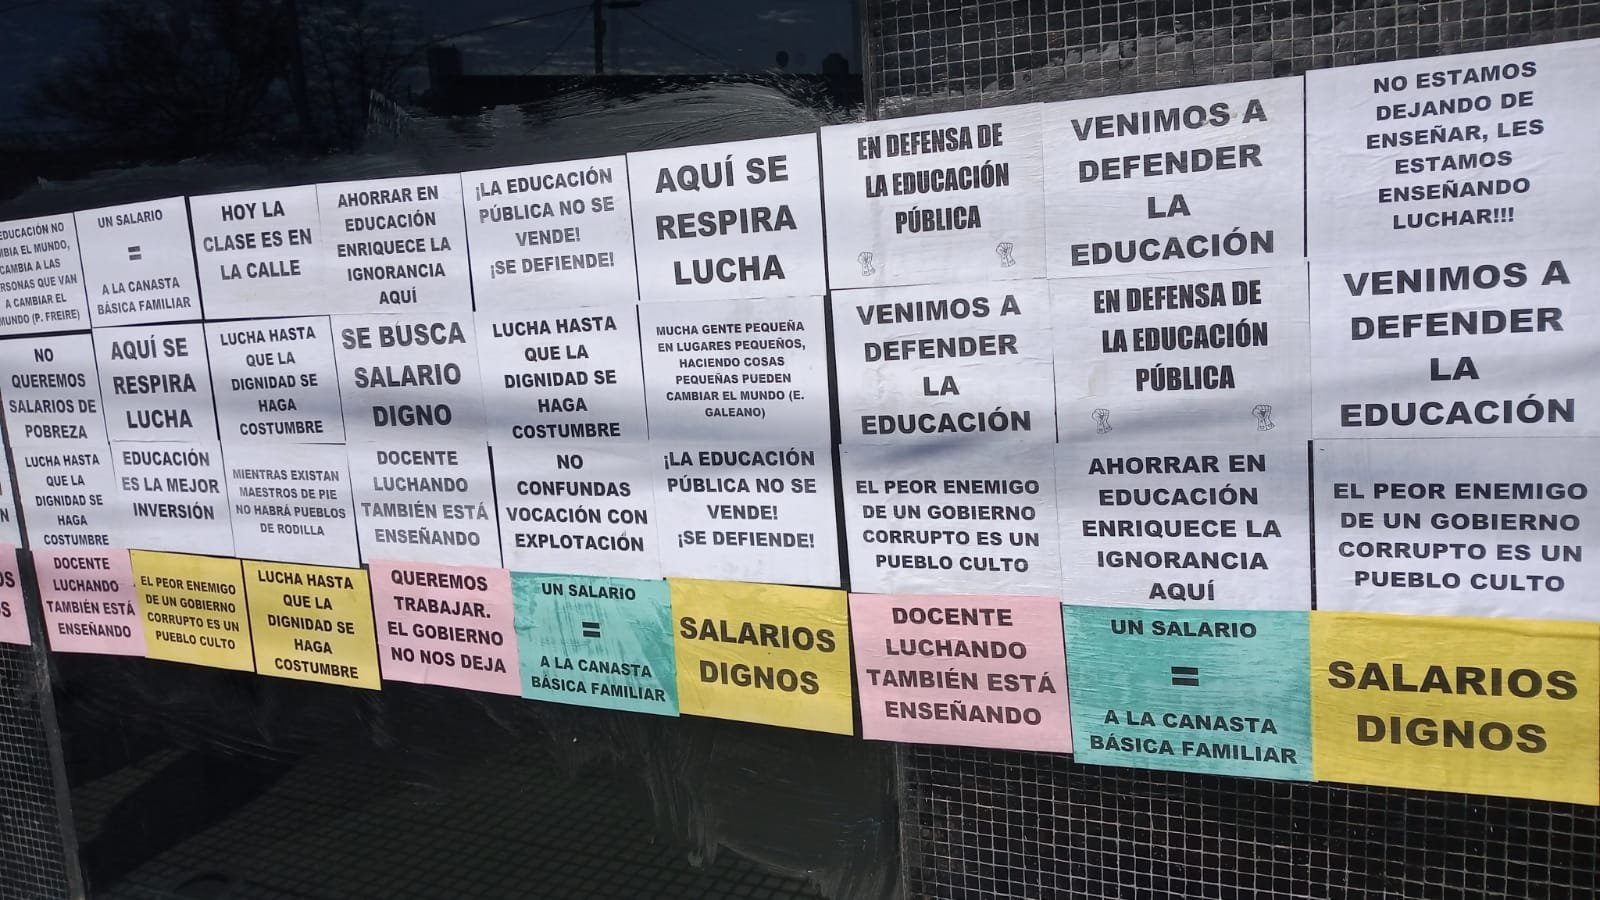 EDUCACIÓN NO
EL MUNDO,
CAMBIA A LAS
QUE VAN
A CAMBIAR EL
MUNDO (P. FREIRE)
UN SALARIO
=
A LA CANASTA
BÁSICA FAMILIAR
HOY LA
CLASE ES EN
LA CALLE
AHORRAR EN
EDUCACIÓN
ENRIQUECE LA
IGNORANCIA
AQUÍ
¡LA EDUCACIÓN
PÚBLICA NO SE
VENDE!
¡SE DEFIENDE!
AQUÍ SE
RESPIRA
LUCHA
EN DEFENSA DE
LA EDUCACIÓN
PÚBLICA
VENIMOS A
DEFENDER
LA
EDUCACIÓN
NO ESTAMOS
DEJANDO DE
ENSEÑAR, LES
ESTAMOS
ENSEÑANDO
LUCHAR!!!
NO
QUEREMOS
SALARIOS DE
POBREZA
AQUÍ SE
RESPIRA
LUCHA
LUCHA HASTA
QUE LA
DIGNIDAD SE
HAGA
COSTUMBRE
SE BUSCA
SALARIO
DIGNO
LUCHA HASTA
QUE LA
DIGNIDAD SE
HAGA
COSTUMBRE
MUCHA GENTE PEQUEÑA
EN LUGARES PEQUEÑOS,
HACIENDO COSAS
PEQUEÑAS PUEDEN
CAMBIAR EL MUNDO (E.
GALEANO)
VENIMOS A
DEFENDER
LA
EDUCACIÓN
EN DEFENSA DE
LA EDUCACIÓN
PÚBLICA
VENIMOS A
DEFENDER
LA
EDUCACIÓN
LUCHA HASTA
QUE LA
DIGNIDAD SE
HAGA
COSTUMBRE
EDUCACIÓN
ES LA MEJOR
INVERSIÓN
MIENTRAS EXISTAN
MAESTROS DE PIE
NO HABRÁ PUEBLOS
DE RODILLA
DOCENTE
LUCHANDO
TAMBIÉN ESTÁ
ENSEÑANDO
NO
CONFUNDAS
VOCACIÓN CON
EXPLOTACIÓN
¡LA EDUCACIÓN
PÚBLICA NO SE
VENDE!
¡SE DEFIENDE!
EL PEOR ENEMIGO
DE UN GOBIERNO
CORRUPTO ES UN
PUEBLO CULTO
AHORRAR EN
EDUCACIÓN
ENRIQUECE LA
IGNORANCIA
AQUÍ
EL PEOR ENEMIGO
DE UN GOBIERNO
CORRUPTO ES UN
PUEBLO CULTO
DOCENTE
LUCHANDO
TAMBIÉN ESTÁ
ENSEÑANDO
EL PEOR ENEMIGO
DE UN GOBIERNO
CORRUPTO ES UN
PUEBLO CULTO
LUCHA HASTA
QUE LA
DIGNIDAD SE
HAGA
COSTUMBRE
QUEREMOS
TRABAJAR.
EL GOBIERNO
NO NOS DEJA
UN SALARIO
=
A LA CANASTA
BÁSICA FAMILIAR
SALARIOS
DIGNOS
DOCENTE
LUCHANDO
TAMBIÉN ESTÁ
ENSEÑANDO
UN SALARIO
=
A LA CANASTA
BÁSICA FAMILIAR
SALARIOS
DIGNOS